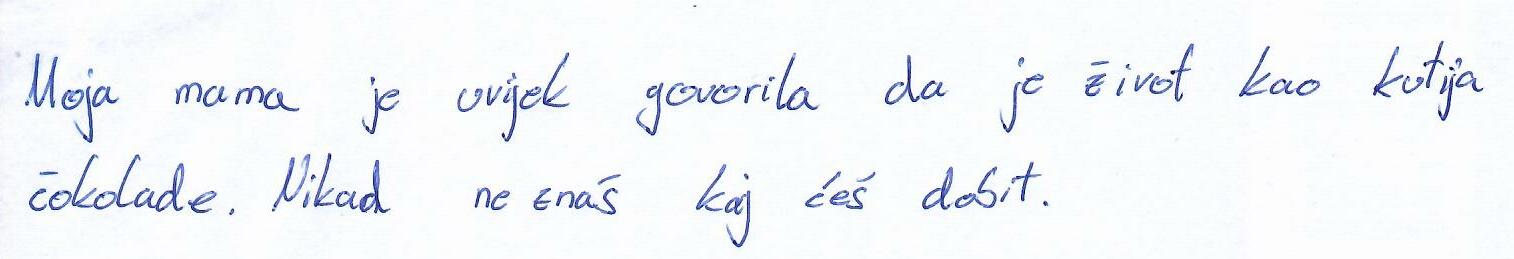 Moja mama je uvijek govorila da je život kao kutija
čokolade. Nikad ne znaš kaj ćeš dobit.